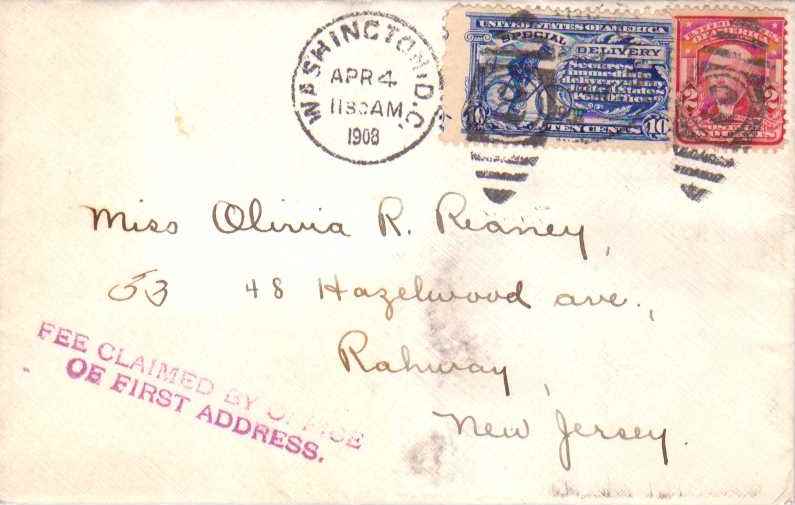 WASHINGTON, D.C.
APR 4
1130AM
1908
UNITED STATES OF AMERICA
SPECIAL DELIVERY
Secures
immediate
delivery at any
United States
Post Office
10 TEN CENTS 10
UNITED STATES
OF AMERICA
2 2
Miss Olivia R. Reaney,
53 48 Hazelwood ave.,
Rahway,
New Jersey.
FEE CLAIMED BY OFFICE
OF FIRST ADDRESS.